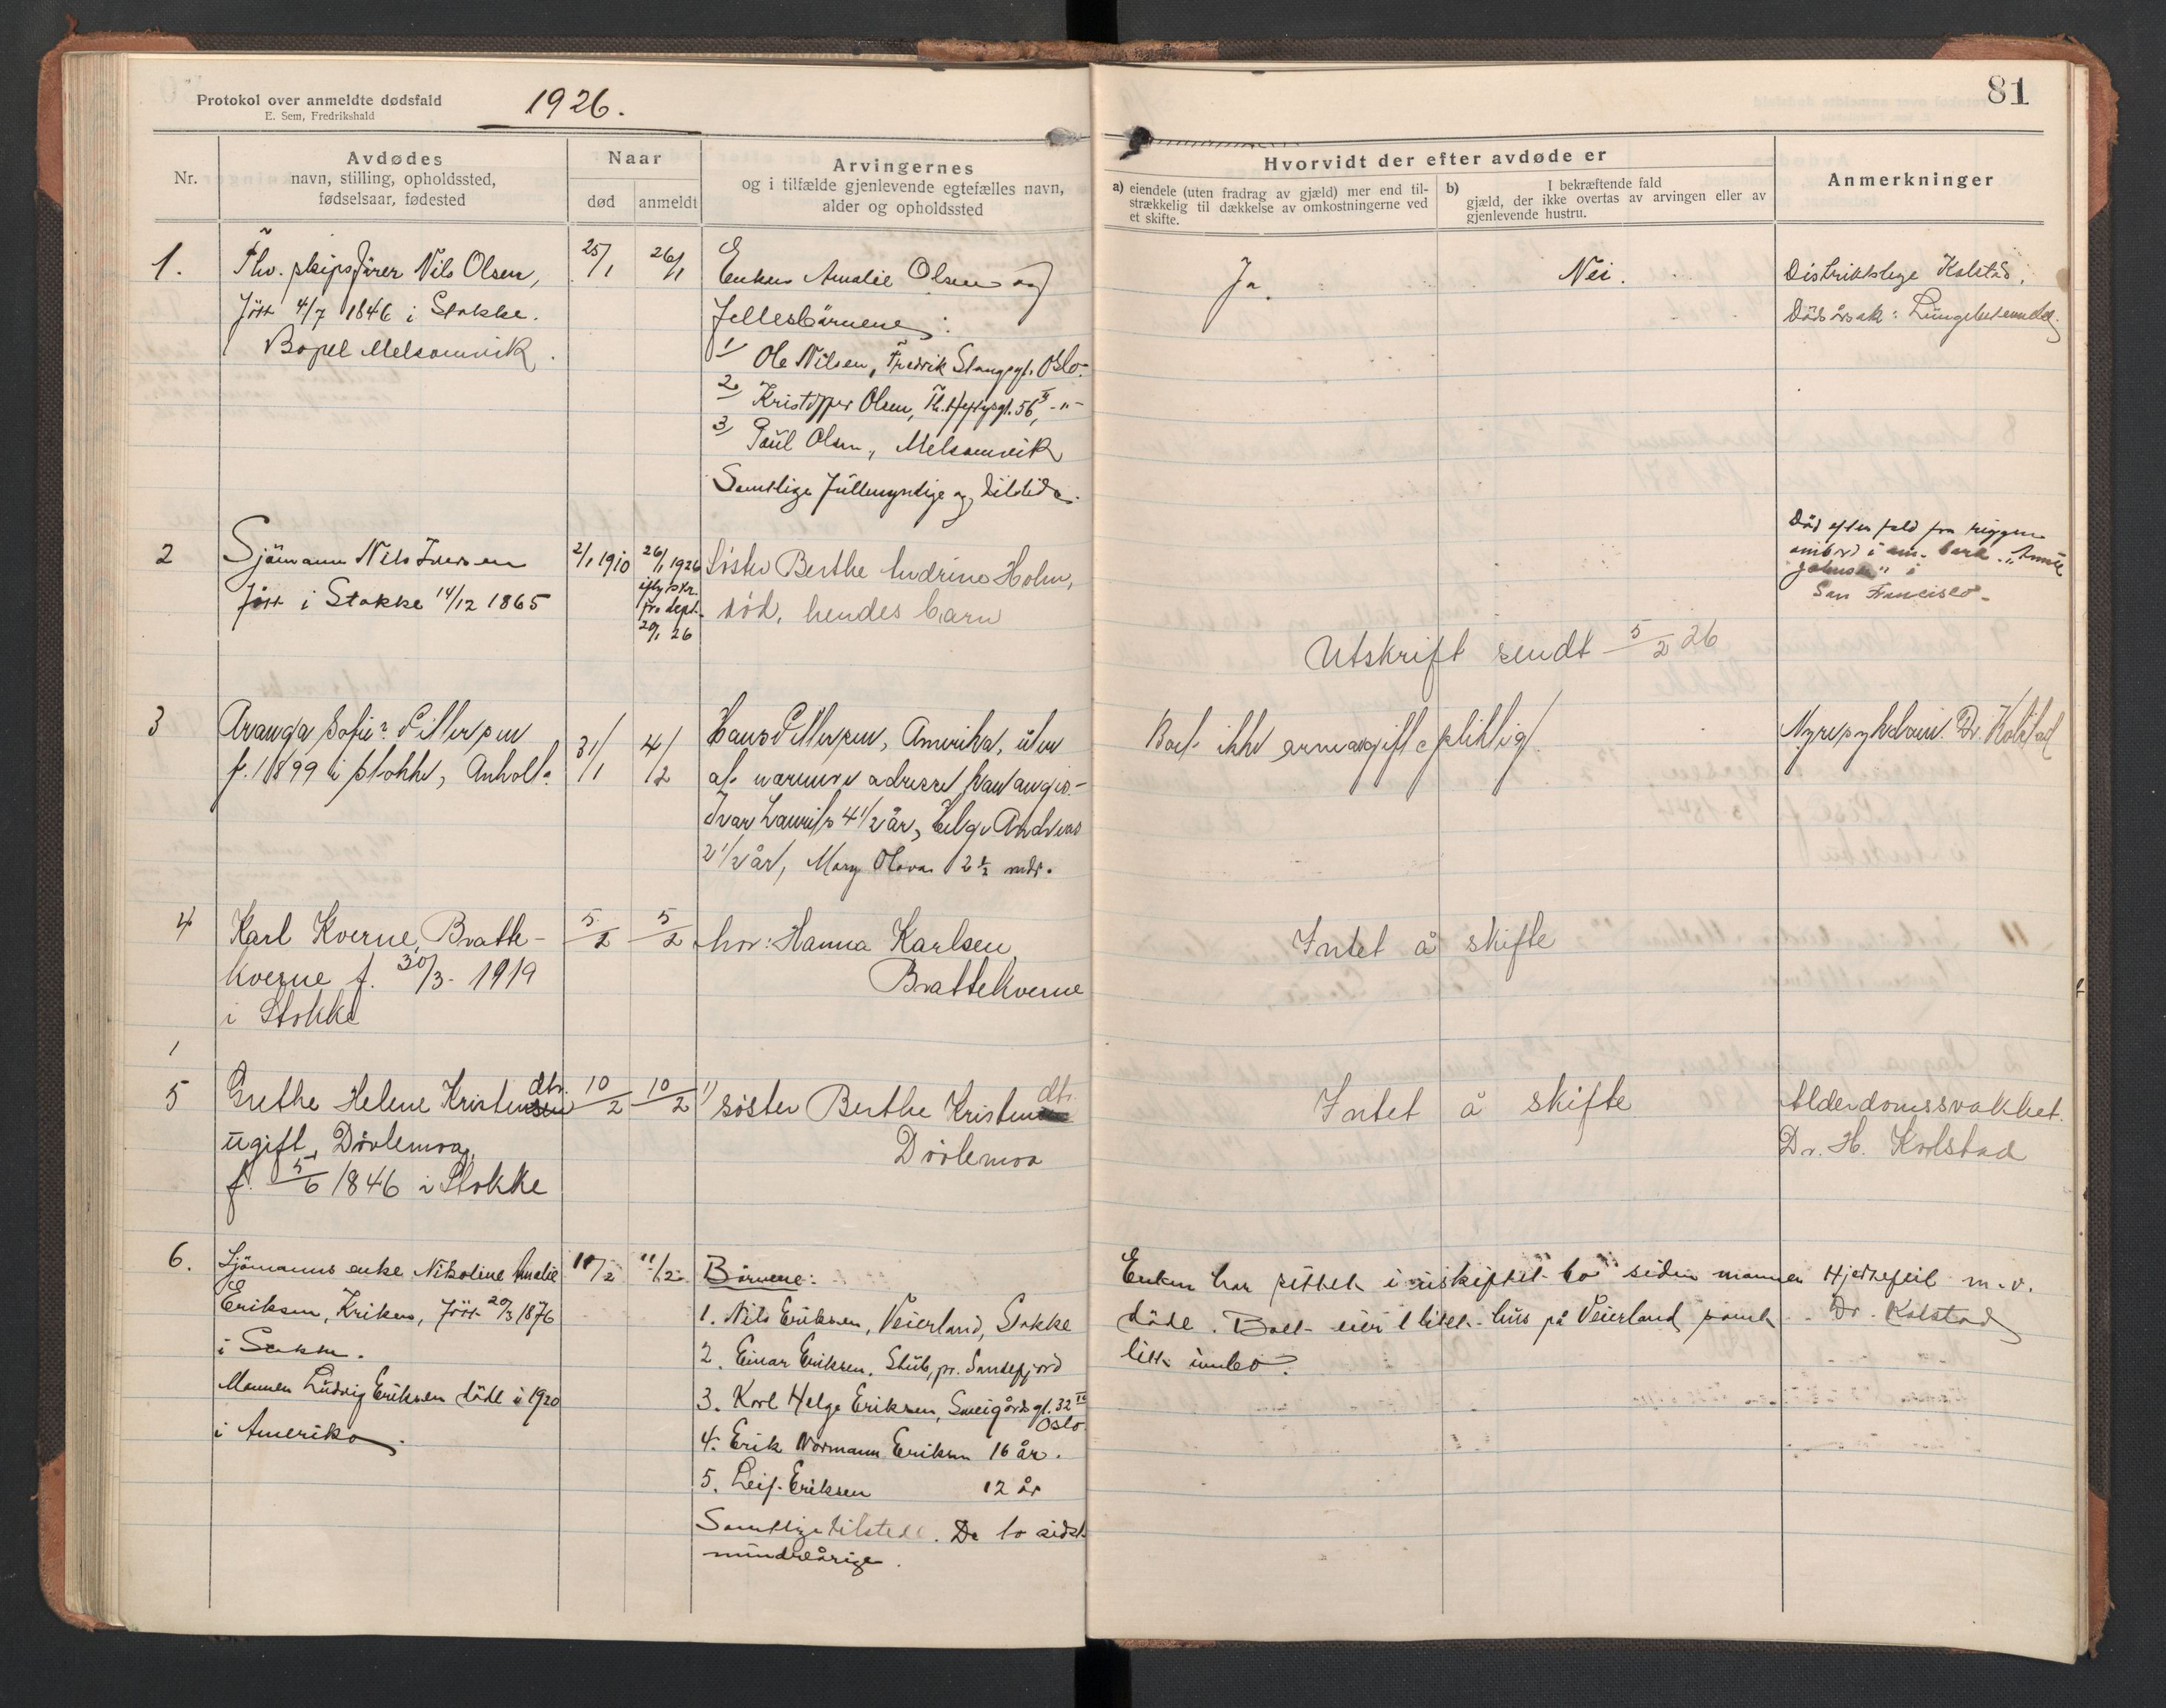 Protokol over anmeldte dødsfald
E. Sem, Fredrikshald
1926.
Nr.
Avdødes
navn, stilling, opholdssted,
fødselsaar, fødested
Naar
død
anmeldt
Arvingernes
og i tilfælde gjenlevende egtefælles navn,
alder og opholdssted
1.
Fhv. skipsfører Nils Olsen,
født 4/7 1846 i Stokke.
Bopel Melsomvik.
25/1
26/1
Enken Amalie Olsen og
fellesbärnene:
1/ Ole Nilsen, Fredrik Stangsgt. Oslo.
2/ Kristoffer Olsen, Th. Heftyesgt. 56 II, -"-
3/ Paul Olsen, Melsomvik
Samtlige fullmyndige og tilstede.
2
Sjömann Nils Iversen
født i Stokke 14/12 1865
2/1 1910
26/1 1926
iflg skr.
fra dept.
20/1 26
Søster Berthe Andrine Holm,
død, hendes barn
3
Aranga Sofie Pettersen
f. 1899 i Stokke, Anholt.
31/1
4/2
Hans Pettersen, Amerika, uten
at nærmere adresse kan angis.
Ivar Laurits 4 1/2 år, Helge Andreas
2 1/2 år, Mary Olova 2 1/2 mdr.
4
Karl Kverne, Bratte-
kverne f. 30/3 - 1919
i Stokke
5/2
5/2
mor: Hanna Karlsen,
Brattekverne
1
5
Grethe Helene Kristensen dtr.
ugift, Dövlemoa,
f. 5/6 1846 i Stokke
10/2
10/2
1) søster Berthe Kristen dtr.
Dövlemoa
6.
Sjömanns enke Nikoline Amalie
Eriksen, Kriken, født 20/3 1876
i Stokke.
Mannen Ludvig Eriksen døde i 1920
i Amerika.
10/2
11/2
Börnene:
1. Nils Eriksen, Veierland, Stokke
2. Einar Eriksen, Stub, pr. Sandefjord
3. Karl Helge Eriksen, Sveigårds gt. 32 IV
Oslo
4. Erik Normann Eriksen 16 år.
5. Leif Eriksen 12 år
Samtlige tilstede. De to sidste
mindreårige.
81
Hvorvidt der efter avdøde er
a) eiendele (uten fradrag av gjæld) mer end til-
strækkelig til dækkelse av omkostningerne ved
et skifte.
b) I bekræftende fald
gjæld, der ikke overtas av arvingen eller av
gjenlevende hustru.
Anmerkninger
Ja.
Nei.
Distriktslege Kolstad.
Dödsårsak: Lungebetendelse.
Död efter fald fra riggen
ombord i am. bark "Annie
Johnson" i
San Francisco.
Utskrift sendt 5/2 26
Boet ikke arveavgiftspliktig
Nyresykdom. Dr. Kolstad
Intet å skifte
Intet å skifte
Alderdomssvakhet.
Dr. H. Kolstad
Enken har sittet i uskiftet bo siden mannen
döde. Boet eier 1 litet hus på Veierland samt
litt innbo.
Hjertefeil m.v.
Dr. Kolstad